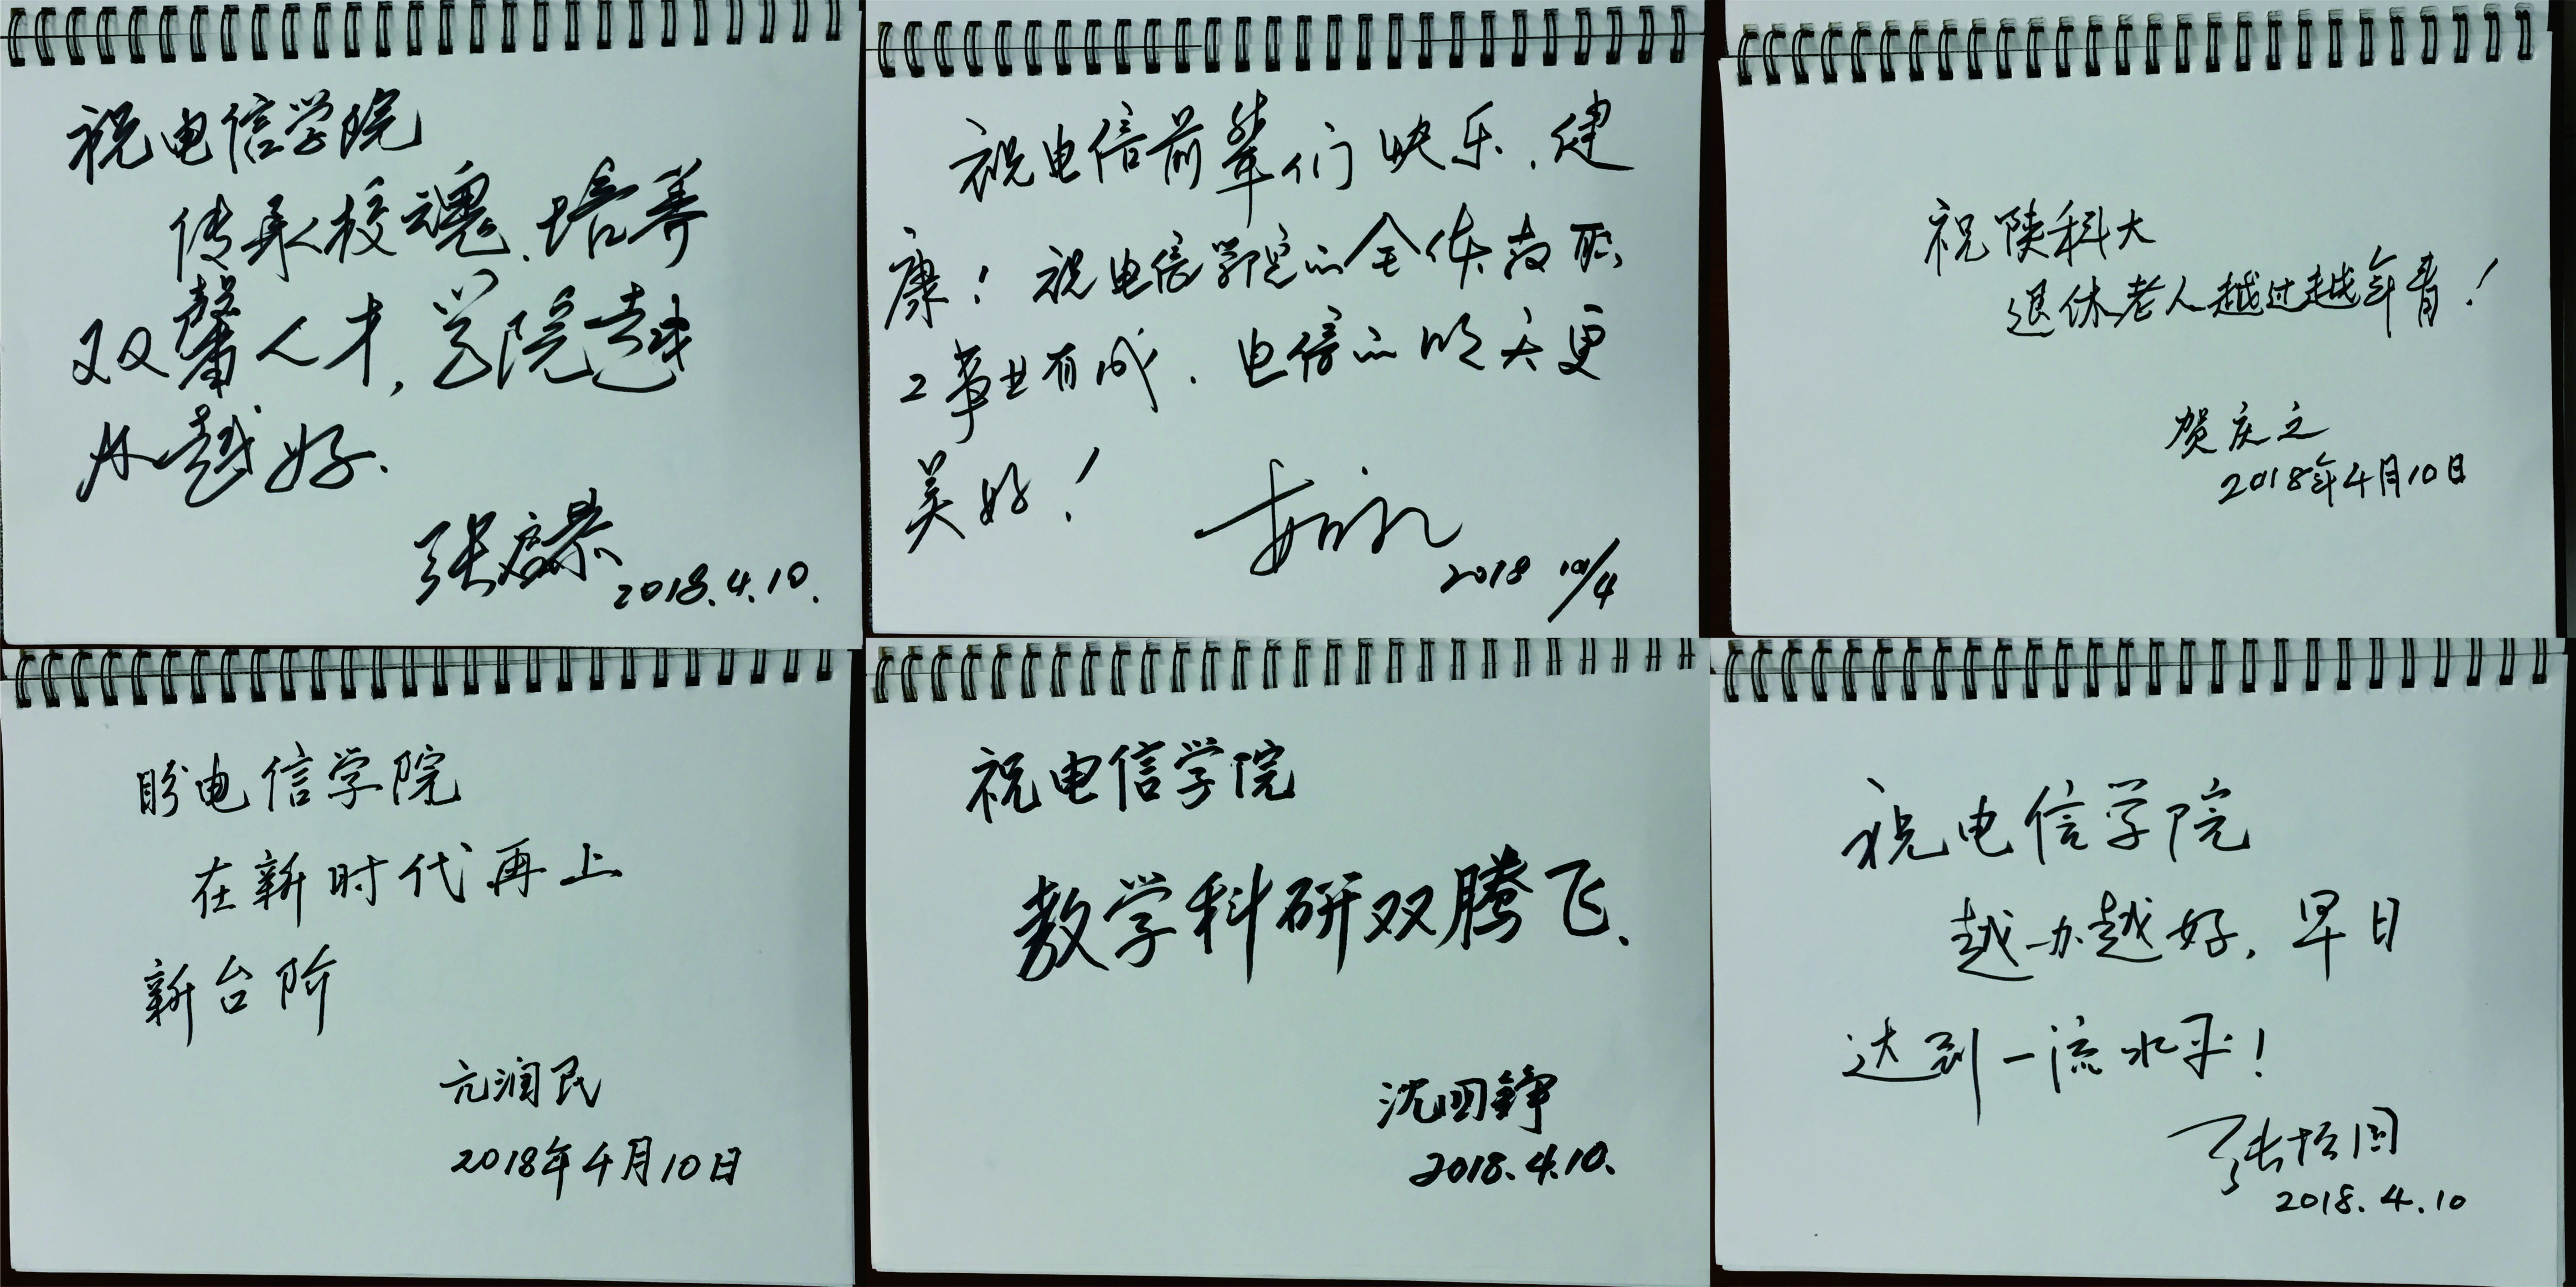 祝电信学院
传承校魂、培养
双馨人才,学院越
办越好.
张启
2018.4.10.
祝电信前辈们快乐、健
康!祝电信学院的全体教职
工事业有成、电信的明天更
美好!
2018 10/4
祝陕科大
退休老人越过越年青!
贺庆之
2018年4月10日
盼电信学院
在新时代再上
新台阶
亢润民
2018年4月10日
祝电信学院
教学科研双腾飞、
沈四铮
2018.4.10.
祝电信学院
越办越好,早日
达到一流水平!
张培因
2018.4.10